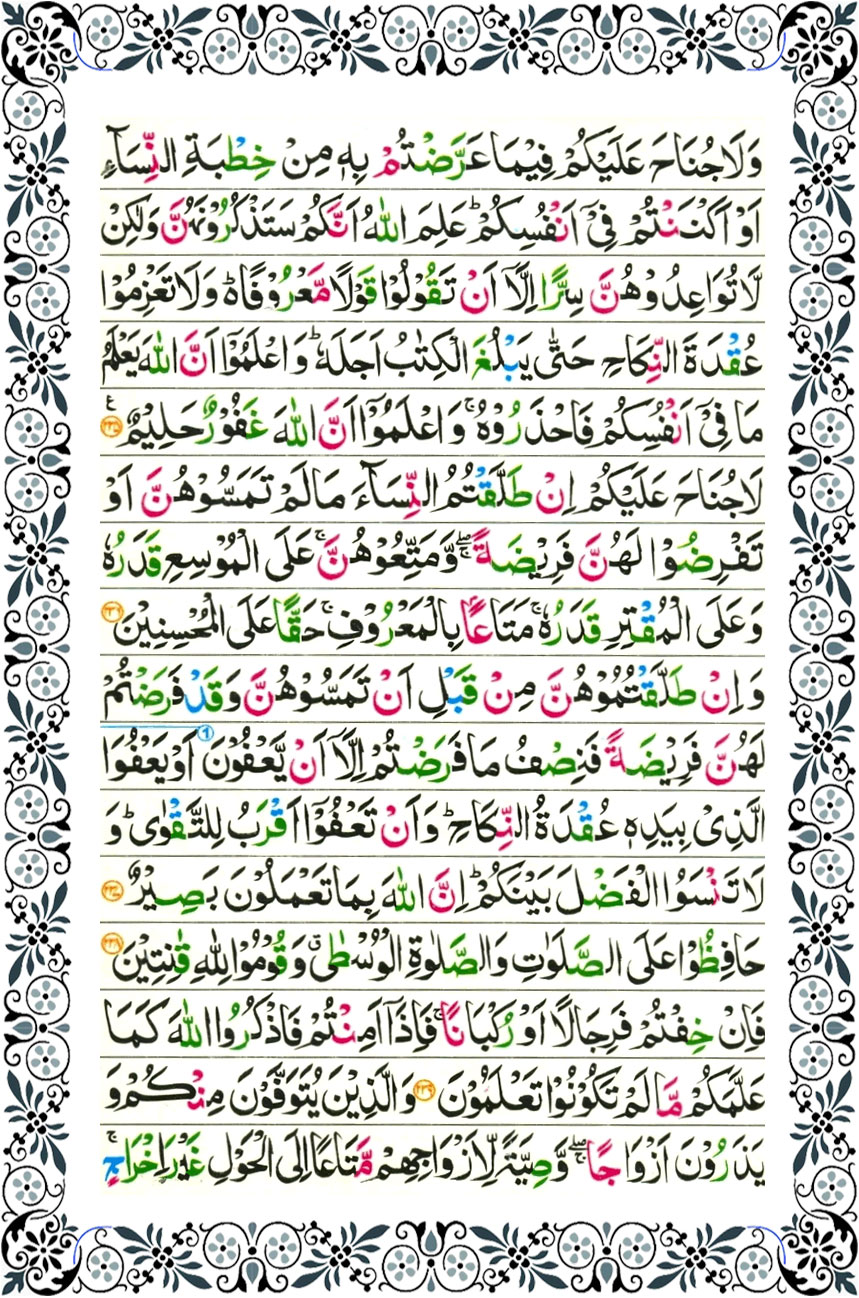 وَلَا جُنَاحَ عَلَيْكُمْ فِيْمَا عَرَّضْتُمْ بِهٖ مِنْ خِطْبَةِ النِّسَآءِ
اَوْ اَكْنَنْتُمْ فِىْٓ اَنْفُسِكُمْ ؕ عَلِمَ اللّٰهُ اَنَّكُمْ سَتَذْكُرُوْنَهُنَّ وَلٰكِنْ
لَّا تُوَاعِدُوْهُنَّ سِرًّا اِلَّاۤ اَنْ تَقُوْلُوْا قَوْلًا مَّعْرُوْفًا ؕ ۬ وَلَا تَعْزِمُوْا
عُقْدَةَ النِّكَاحِ حَتّٰى يَبْلُغَ الْكِتٰبُ اَجَلَهٗ ؕ وَاعْلَمُوْٓا اَنَّ اللّٰهَ يَعْلَمُ
مَا فِىْٓ اَنْفُسِكُمْ فَاحْذَرُوْهُ ۚ وَاعْلَمُوْٓا اَنَّ اللّٰهَ غَفُوْرٌ حَلِيْمٌ ﴿۲۳۵﴾ ع
لَا جُنَاحَ عَلَيْكُمْ اِنْ طَلَّقْتُمُ النِّسَآءَ مَالَمْ تَمَسُّوْهُنَّ اَوْ
تَفْرِضُوْا لَهُنَّ فَرِيْضَةً ۖۚ وَّمَتِّعُوْهُنَّ ۚ عَلَى الْمُوْسِعِ قَدَرُهٗ
وَعَلَى الْمُقْتِرِ قَدَرُهٗ ۚ مَتَاعًا بِالْمَعْرُوْفِ ۚ حَقًّا عَلَى الْمُحْسِنِيْنَ ﴿۲۳۶﴾
وَاِنْ طَلَّقْتُمُوْهُنَّ مِنْ قَبْلِ اَنْ تَمَسُّوْهُنَّ وَقَدْ فَرَضْتُمْ
لَهُنَّ فَرِيْضَةً فَنِصْفُ مَا فَرَضْتُمْ اِلَّاۤ اَنْ يَّعْفُوْنَ اَوْ يَعْفُوَا
الَّذِىْ بِيَدِهٖ عُقْدَةُ النِّكَاحِ ؕ وَاَنْ تَعْفُوْٓا اَقْرَبُ لِلتَّقْوٰى ؕ وَ
لَا تَنْسَوُا الْفَضْلَ بَيْنَكُمْ ؕ اِنَّ اللّٰهَ بِمَا تَعْمَلُوْنَ بَصِيْرٌ ﴿۲۳۷﴾
حَافِظُوْا عَلَى الصَّلَوٰتِ وَالصَّلٰوةِ الْوُسْطٰى ۗ وَقُوْمُوْا لِلّٰهِ قٰنِتِيْنَ ﴿۲۳۸﴾
فَاِنْ خِفْتُمْ فَرِجَالًا اَوْ رُكْبَانًا ۚ فَاِذَاۤ اَمِنْتُمْ فَاذْكُرُوا اللّٰهَ كَمَا
عَلَّمَكُمْ مَّا لَمْ تَكُوْنُوْا تَعْلَمُوْنَ ﴿۲۳۹﴾ وَالَّذِيْنَ يُتَوَفَّوْنَ مِنْكُمْ وَ
يَذَرُوْنَ اَزْوَاجًا ۖۚ وَّصِيَّةً لِّاَزْوَاجِهِمْ مَّتَاعًا اِلَى الْحَوْلِ غَيْرَ اِخْرَاجٍ ۚ